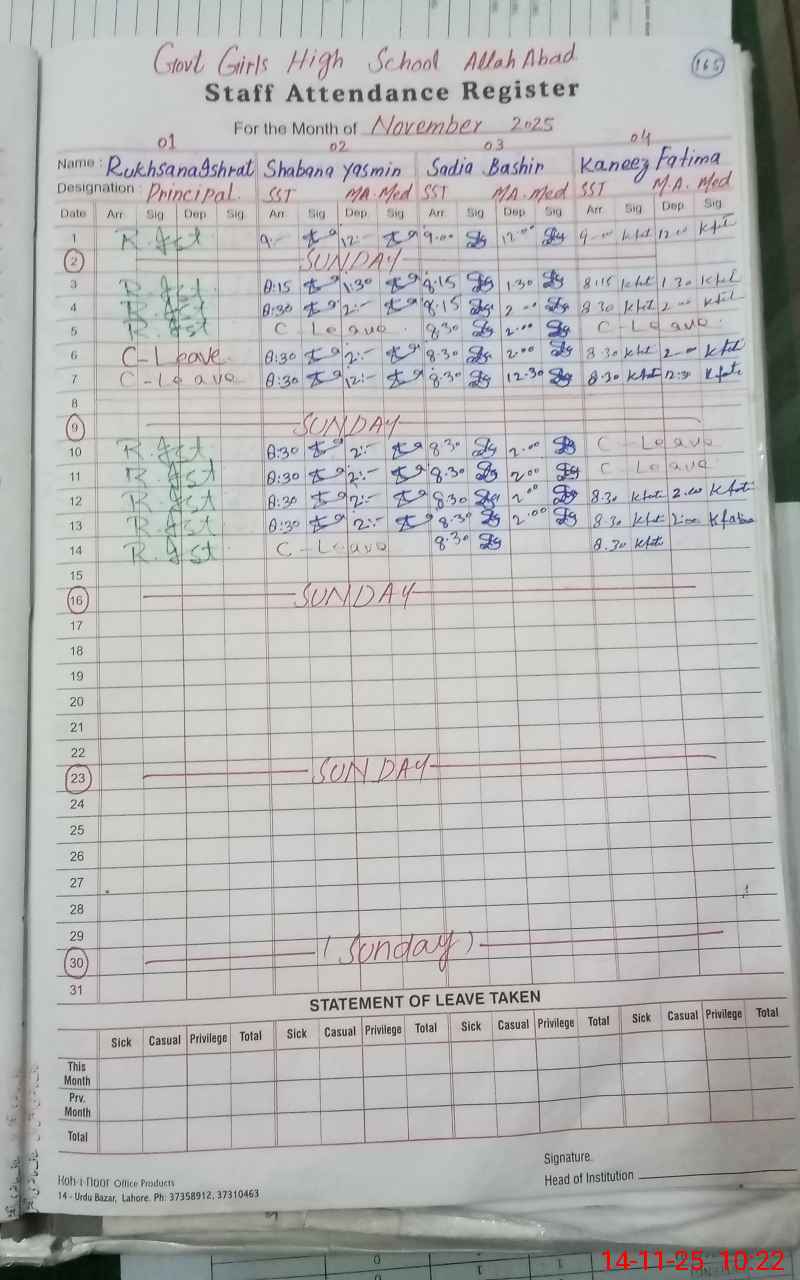 Govt Girls High School Allah Abad
165
Staff Attendance Register
For the Month of November 2025
01 02 03 04
Name : Rukhsana Ishrat Shabana Yasmin Sadia Bashir Kaneez Fatima
Designation : Principal. SST MA. Med SST MA. Med SST M.A. Med
Date Arr. Sig Dep Sig. Arr. Sig Dep. Sig. Arr. Sig Dep Sig. Arr. Sig. Dep. Sig.
1 9- 12:- 9.00 12.00 9.00 12.00
2 SUNDAY
3 8:15 1:30 8.15 1.30 8.15 1.30
4 8:30 2:- 8.15 2.00 8.30 2.00
5 C-Leave 8.30 2.00 C-Leave
6 C-Leave 8:30 2:- 8.30 2.00 8.30 2.00
7 C-Leave 8:30 12:- 8.30 12.30 8.30 12.30
8
9 SUNDAY
10 8:30 2:- 8.30 2.00 C-Leave
11 8:30 2:- 8.30 2.00 C-Leave
12 8:30 2:- 8.30 2.00 8.30 2.00
13 8:30 2:- 8.30 2.00 8.30 2.00
14 C-Leave 8.30 8.30
15
16 SUNDAY
17
18
19
20
21
22
23 SUNDAY
24
25
26
27
28
29
30 (Sunday)
31
STATEMENT OF LEAVE TAKEN
Sick Casual Privilege Total Sick Casual Privilege Total Sick Casual Privilege Total Sick Casual Privilege Total
This
Month
Prv.
Month
Total
Signature.
Head of Institution
Koh-i-noor Office Products
14 - Urdu Bazar, Lahore. Ph: 37358912, 37310463
14-11-25, 10:22